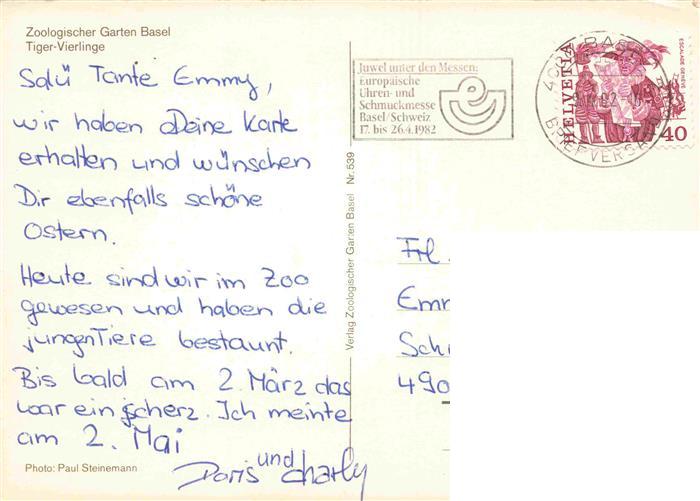 Zoologischer Garten Basel
Tiger-Vierlinge
Salü Tante Emmy,
wir haben Deine Karte
erhalten und wünschen
Dir ebenfalls schöne
Ostern.
Heute sind wir im Zoo
gewesen und haben die
jungen Tiere bestaunt.
Bis bald am 2. März das
war ein scherz. Ich meinte
am 2. Mai
Doris und Charly
Photo: Paul Steinemann
Verlag Zoologischer Garten Basel Nr. 539
Juwel unter den Messen:
Europäische
Uhren- und
Schmuckmesse
Basel/Schweiz
17. bis 26.4.1982
BASEL
BRIEFVERSAND
HELVETIA
ESCALADE GENÈVE
40
Frl.
Emm
Sch
490